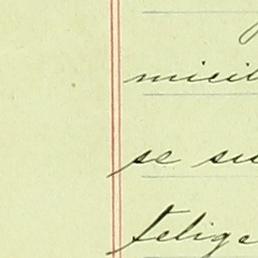 micil
se su
telige